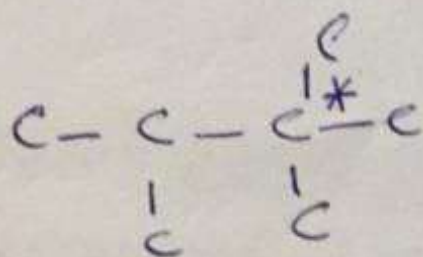 C
C - C - C * - C
C C